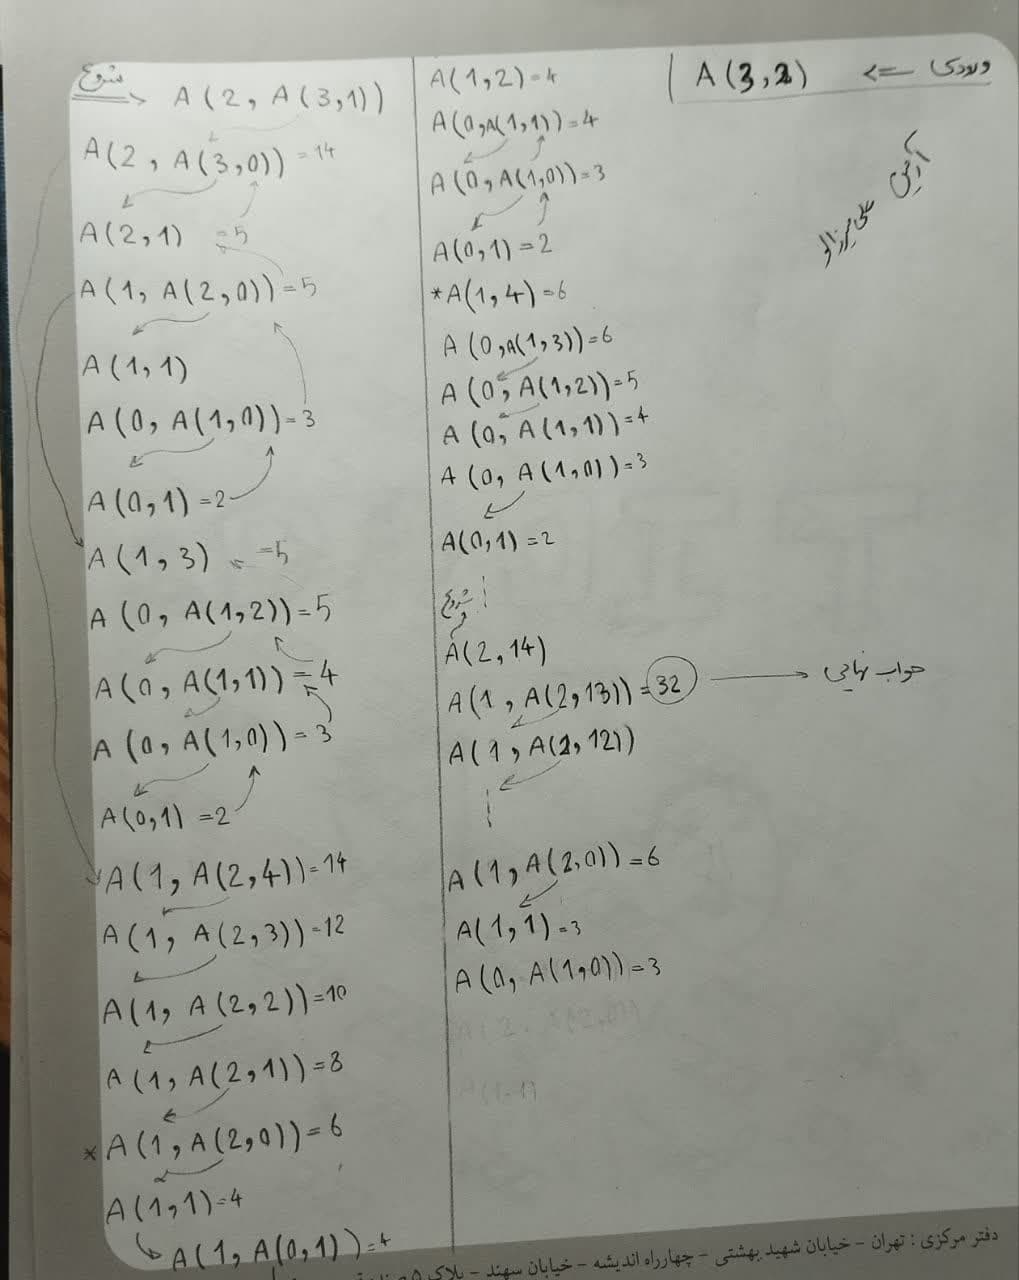 ورودی <= A(3,2)
آرین
شروع
A(2, A(3,1))
A(2, A(3,0))=14
A(2,1) =5
A(1, A(2,0))=5
A(1,1)
A(0, A(1,0))=3
A(0,1)=2
A(1,3) =5
A(0, A(1,2))=5
A(0, A(1,1))=4
A(0, A(1,0))=3
A(0,1)=2
A(1, A(2,4))=14
A(1, A(2,3))=12
A(1, A(2,2))=10
A(1, A(2,1))=8
*A(1, A(2,0))=6
A(1,1)=4
A(1, A(0,1))=4
A(1,2)=4
A(0,A(1,1))=4
A(0, A(1,0))=3
A(0,1)=2
*A(1,4)=6
A(0,A(1,3))=6
A(0, A(1,2))=5
A(0, A(1,1))=4
A(0, A(1,0))=3
A(0,1)=2
شروع
A(2,14)
A(1, A(2,13))=32 جواب نهایی
A(1, A(2,12))
A(1, A(2,0))=6
A(1,1)=3
A(0, A(1,0))=3
دفتر مرکزی : تهران - خیابان شهید بهشتی - چهارراه اندیشه - خیابان سهند - پلاک